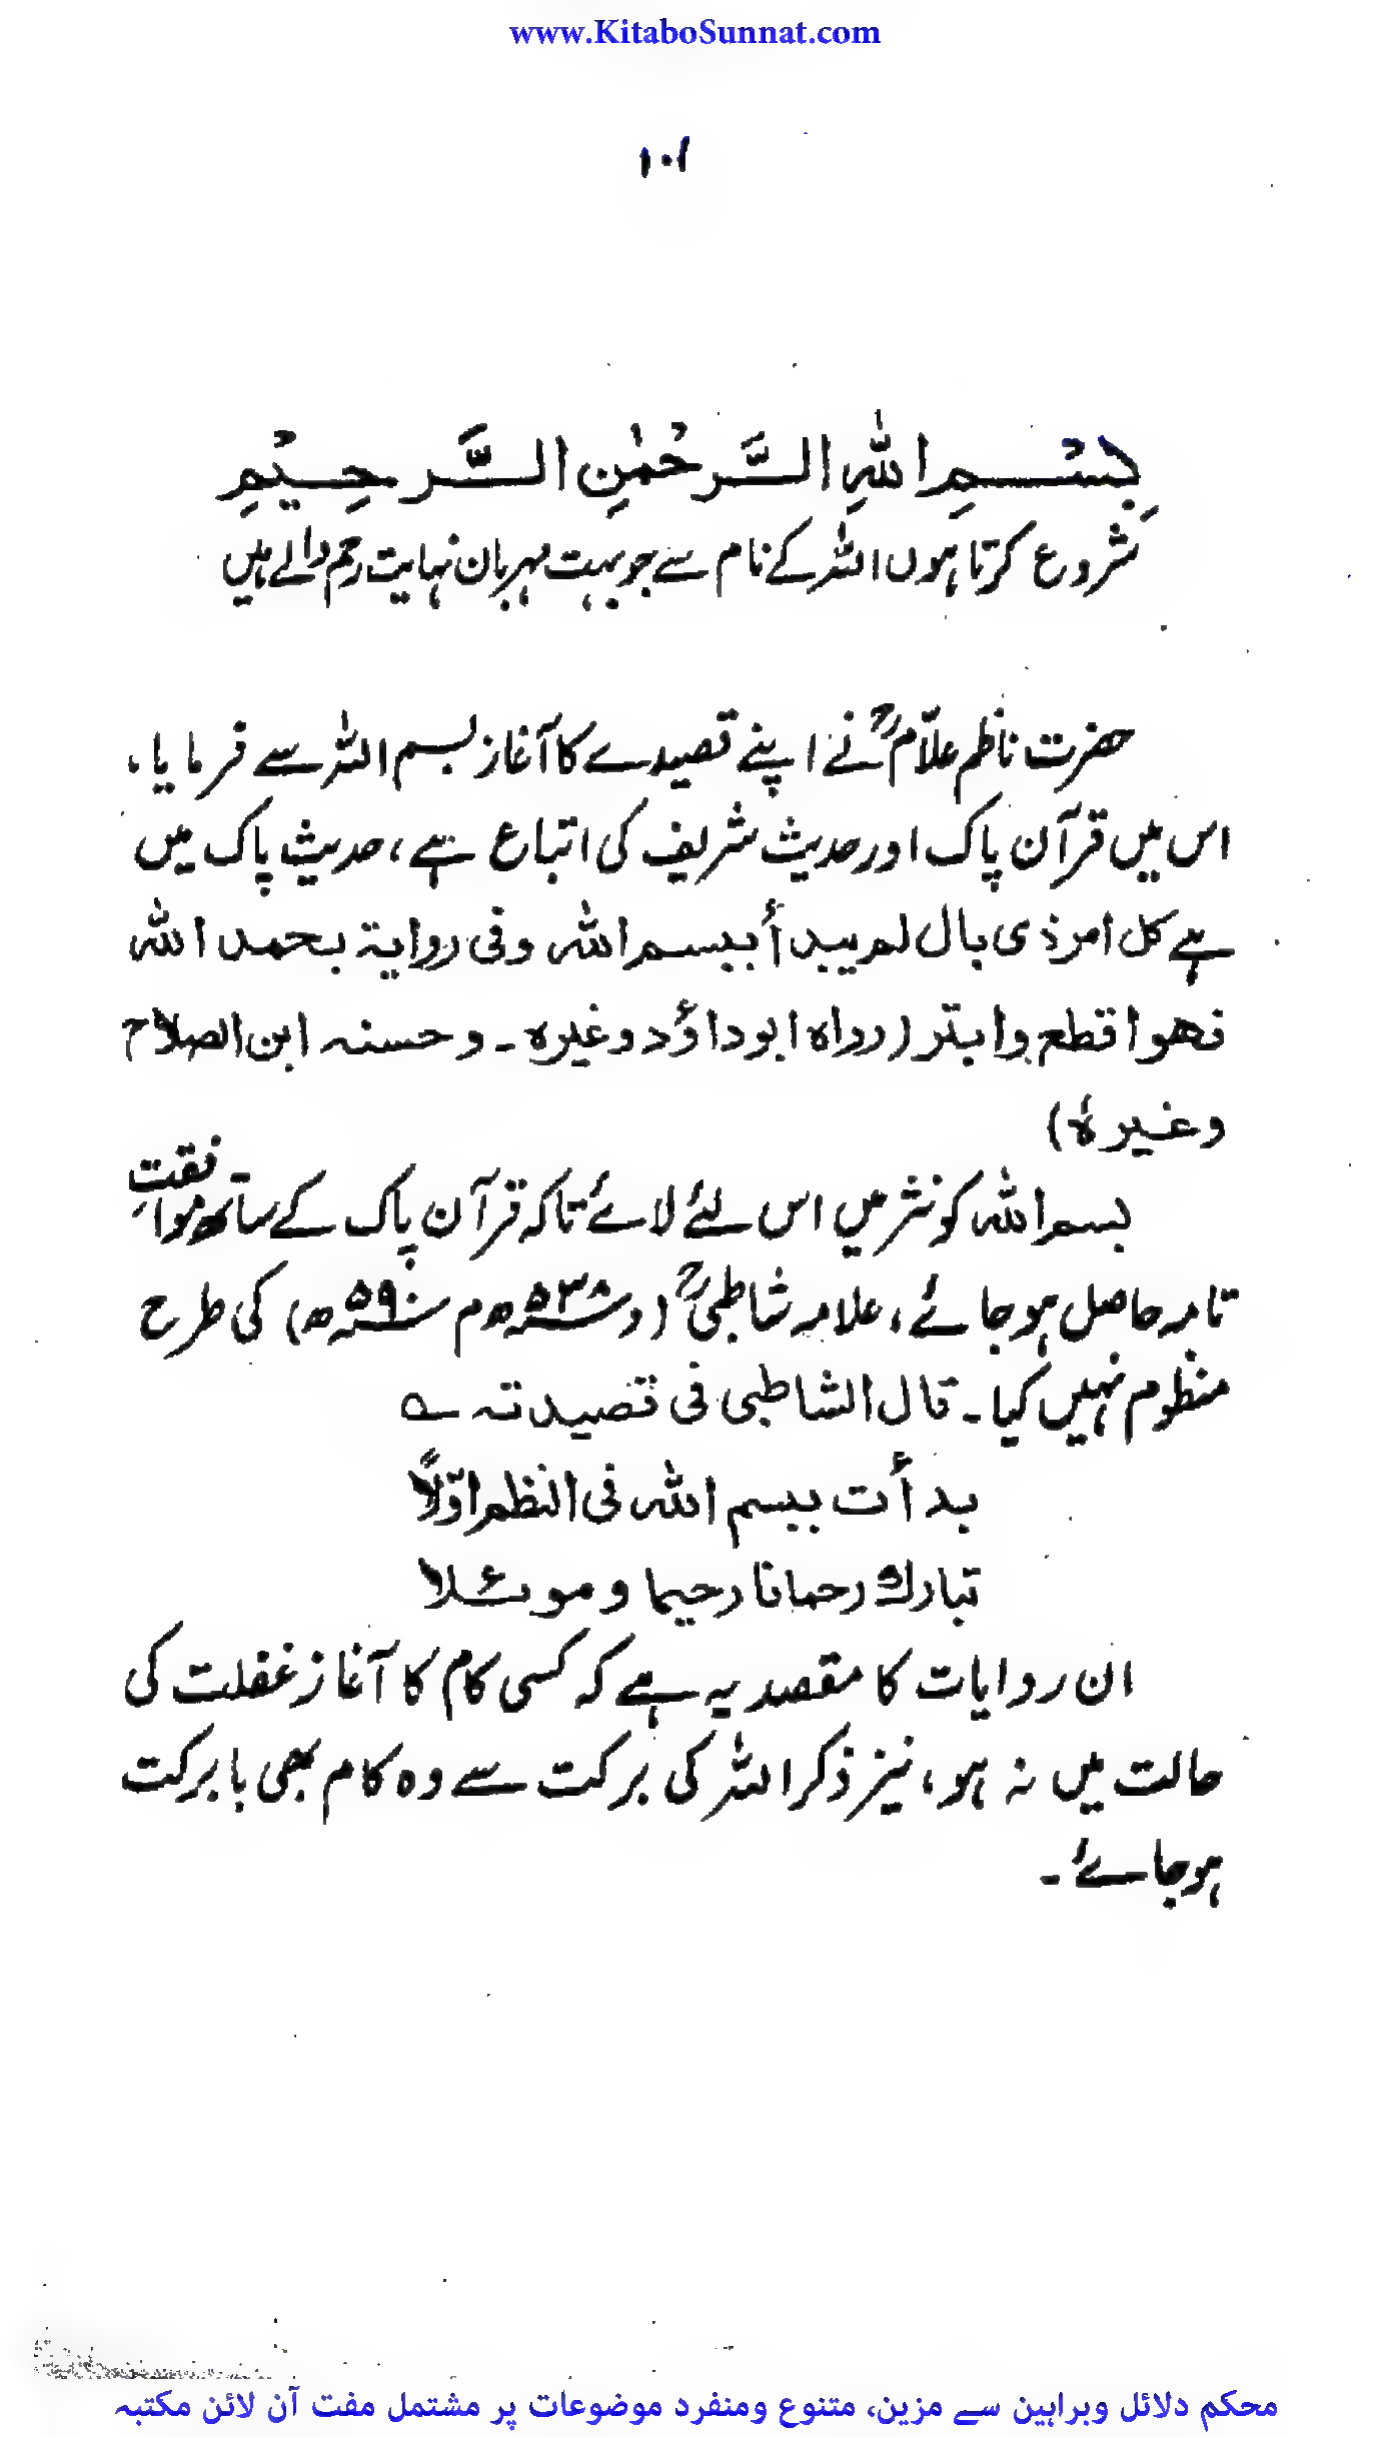 www.KitaboSunnat.com
۱۰۱
بِسْمِ اللّٰهِ الرَّحْمٰنِ الرَّحِيْمِ
شروع کرتا ہوں اللہ کے نام سے جو بہت مہربان نہایت رحم والے ہیں
حضرت ناظم علاّمؒ نے اپنے قصیدے کا آغاز بسم اللہ سے فرمایا،
اس میں قرآن پاک اور حدیث شریف کی اتباع ہے، حدیث پاک میں
ہے کل امر ذی بال لم یبدأ ببسم اللہ وفی روایة بحمد اللہ
فهو اقطع وابتر (رواہ ابوداؤد وغیرہ ۔ وحسنہ ابن الصلاح
وغیرہٗ)
بسم اللہ کو نثر میں اس لئے لائے تاکہ قرآن پاک کے ساتھ موافقتِ
تامہ حاصل ہوجائے، علامہ شاطبیؒ (و ۵۳۸ھ م ۵۹۰ھ) کی طرح
منظوم نہیں کیا ۔ قال الشاطبی فی قصیدتہ ؎
بدأت ببسم اللہ فی النظم اوّلاً
تبارك رحمانا رحیما وموئلا
ان روایات کا مقصد یہ ہے کہ کسی کام کا آغاز غفلت کی
حالت میں نہ ہو، نیز ذکر اللہ کی برکت سے وہ کام بھی بابرکت
ہوجائے ۔
محکم دلائل وبراہین سے مزین، متنوع ومنفرد موضوعات پر مشتمل مفت آن لائن مکتبہ